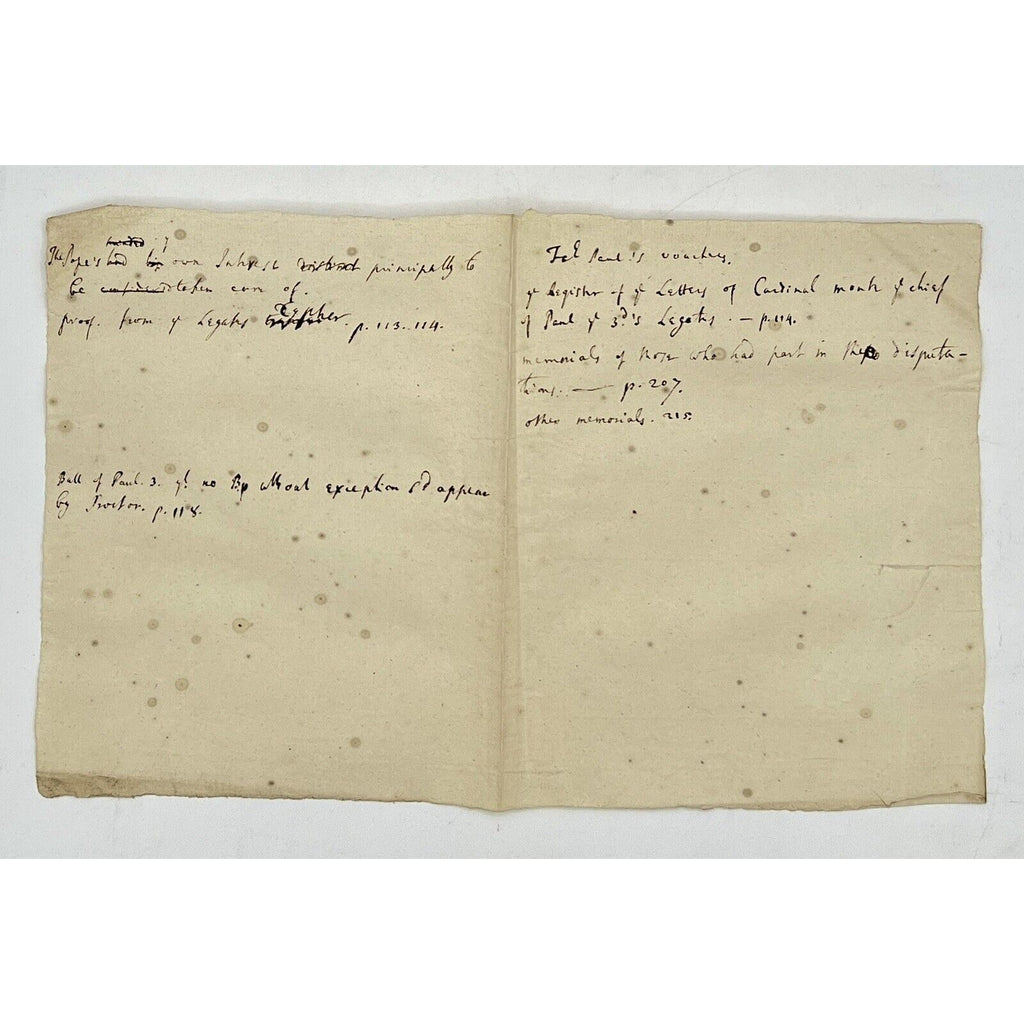 The Pope's own Interest principally to
be taken care of.
proof. from ye Legates Cypher. p. 113. 114.
Bull of Paul. 3. yt no Bp without exception shd appear
by Proctor. p. 118.
Fr Paul's vouchers.
ye Register of ye Letters of Cardinal monte ye chief
of Paul ye 3d's Legates. — p. 114.
memorials of those who had part in the disputa-
tions. — p. 207.
other memorials. 215.